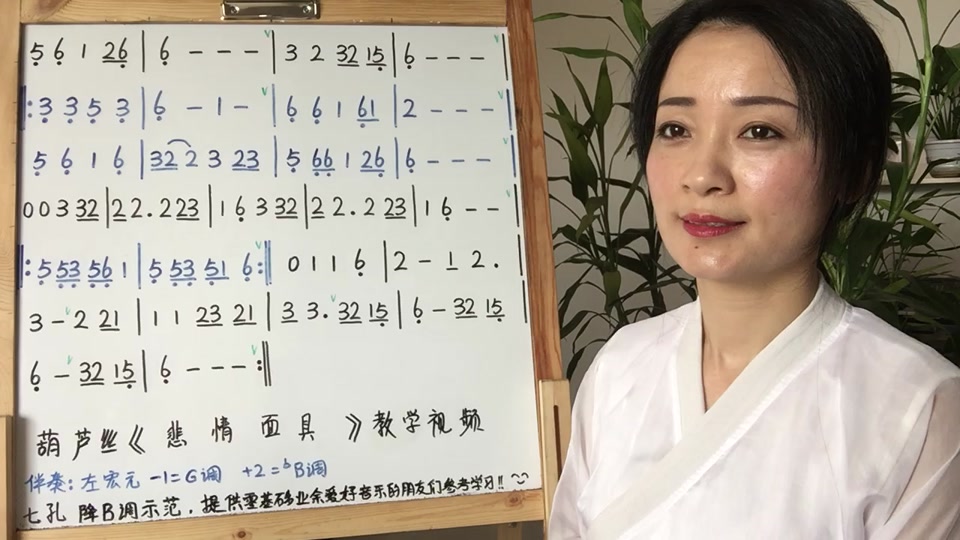 5 6 1 26 | 6 - - - | 3 2 32 15 | 6 - - - |
|: 3 3 5 3 | 6 - 1 - | 6 6 1 61 | 2 - - - |
5 6 1 6 | 32 2 3 23 | 5 66 1 26 | 6 - - - |
0 0 3 32 | 2 2. 2 23 | 1 6 3 32 | 2 2. 2 23 | 1 6 - - |
|: 5 53 56 1 | 5 53 51 6 :| 0 1 1 6 | 2 - 1 2. |
3 - 2 21 | 1 1 23 21 | 3 3. 32 15 | 6 - 32 15 |
6 - 32 15 | 6 - - - :|
葫芦丝《悲情面具》教学视频
伴奏:左宏元 -1=G调 +2=bB调
七孔 降B调示范,提供零基础业余爱好音乐的朋友们参考学习!!